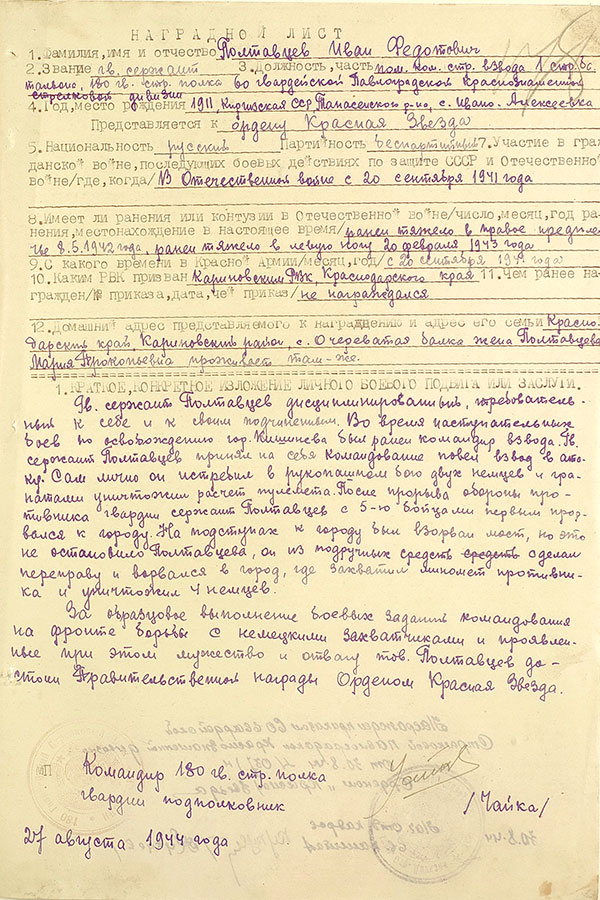 НАГРАДНОЙ ЛИСТ
1.Фамилия,имя и отчество Полтавцев Иван Федотович
2.Звание гв. сержант 3.Должность,часть пом. ком. стр. взвода 1 стр. ба-
тальона, 180 гв. стр. полка 60 гвардейской Павлоградской Краснознаменной
стрелковой дивизии
4.Год,место рождения 1911, Киргизская ССР, р-но, с. Ивано-Алексеевка
Представляется к ордену Красная Звезда
5.Национальность русский Партийность беспартийный 7.Участие в граж-
данской войне,последующих боевых действиях по защите СССР и Отечественной
войне/где,когда/ В Отечественной войне с 20 сентября 1941 года
8.Имеет ли ранения или контузии в Отечественной войне/число,месяц,год ра-
нения,местонахождение в настоящее время/ ранен тяжело в правое предпле-
чье 8.5.1942 года, ранен тяжело в левую ногу 20 февраля 1943 года
9.С какого времени в Красной Армии/месяц,год/ с 20 сентября 1941 года
10.Каким РВК призван РВК, Краснодарского края 11.Чем ранее на-
гражден/№ приказа,дата,чей приказ/ не награждался
12.Домашний адрес представляемого к награждению и адрес его семьи Красно-
дарский край, район, с. Очереватая балка жена Полтавцева
Мария Прокопьевна проживает там-же.
1.КРАТКОЕ,КОНКРЕТНОЕ ИЗЛОЖЕНИЕ ЛИЧНОГО БОЕВОГО ПОДВИГА ИЛИ ЗАСЛУГИ.
Гв. сержант Полтавцев дисциплинированный, требователь-
ный к себе и к своим подчиненным. Во время наступательных
боев по освобождению гор. Кишинева был ранен командир взвода. Гв.
сержант Полтавцев принял на себя командование повел взвод в ата-
ку. Сам лично он истребил в рукопашном бою двух немцев и гра-
натами уничтожил расчет пулемета. После прорыва обороны про-
тивника гвардии сержант Полтавцев с 5-ю бойцами первым прор-
вался к городу. На подступах к городу был взорван мост, но это
не остановило Полтавцева, он из подручных средств средств сделал
переправу и ворвался в город, где захватил миномет противни-
ка и уничтожил 4 немцев.
За образцовое выполнение боевых заданий командования
на фронте борьбы с немецкими захватчиками и проявлен-
ные при этом мужество и отвагу тов. Полтавцев до-
стоин Правительственной награды Орденом Красная Звезда.
МП
Командир 180 гв. стр. полка
гвардии подполковник /Чайка/
27 августа 1944 года